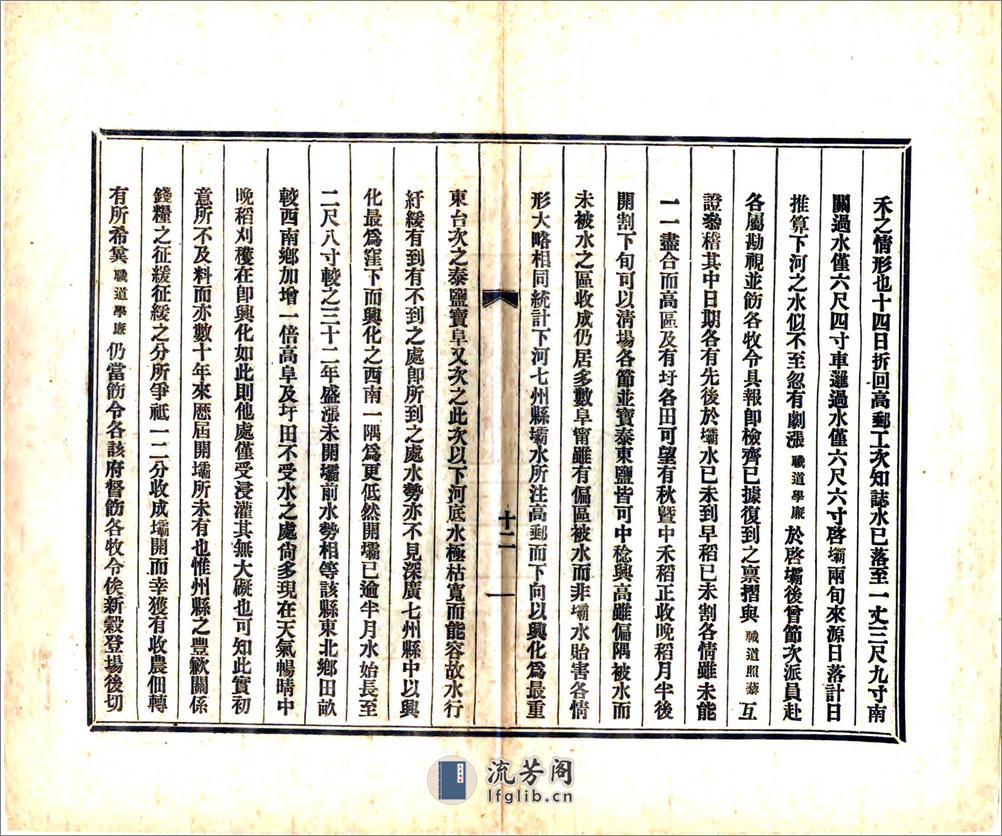 禾之情形也十四日折回高郵工次知誌水已落至一丈三尺九寸南
關過水僅六尺四寸車邏過水僅六尺六寸啓壩兩旬來源日落計日
推算下河之水似不至忽有劇漲職道學廉於啓壩後曾節次派員赴
各屬勘視並飭各牧令具報卽檢齊已據復到之稟摺與職道照藜互
證叅稽其中日期各有先後於壩水已未到早稻已未割各情雖未能
一一盡合而高區及有圩各田可望有秋暨中禾稻正收晚稻月半後
開割下旬可以淸場各節並寶泰東鹽皆可中稔興高雖偏隅被水而
未被水之區收成仍居多數阜甯雖有偏區被水而非壩水貽害各情
形大略相同統計下河七州縣壩水所注高郵而下向以興化爲最重
十二
東台次之泰鹽寶阜又次之此次以下河底水極枯寬而能容故水行
紆緩有到有不到之處卽所到之處水勢亦不見深廣七州縣中以興
化最爲窪下而興化之西南一隅爲更低然開壩已逾半月水始長至
二尺八寸較之三十二年盛漲未開壩前水勢相等該縣東北鄉田畝
較西南鄉加增一倍高阜及圩田不受水之處尙多現在天氣暢晴中
晚稻刈穫在卽興化如此則他處僅受浸灌其無大礙也可知此實初
意所不及料而亦數十年來歷屆開壩所未有也惟州縣之豐歉關係
錢糧之征緩征緩之分所爭祇一二分收成壩開而幸獲有收農佃轉
有所希冀職道學廉仍當飭令各該府督飭各牧令俟新穀登場後切
流芳阁
lfglib.cn